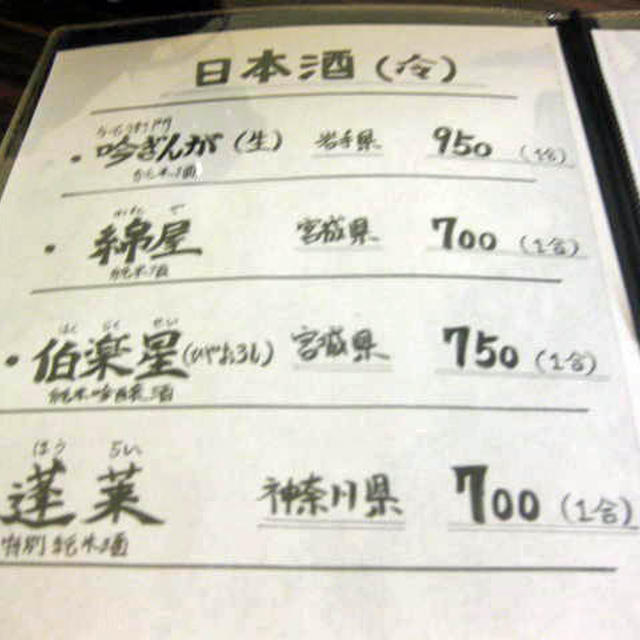 日本酒(冷)
吟ぎんが(生) 岩手県 950 (1合)
純米酒
わた や
綿屋 宮城県 700 (1合)
純米酒
はく らく せい
伯楽星(ひやおろし) 宮城県 750 (1合)
純米吟醸酒
ほう らい
蓬莱 神奈川県 700 (1合)
特別純米酒